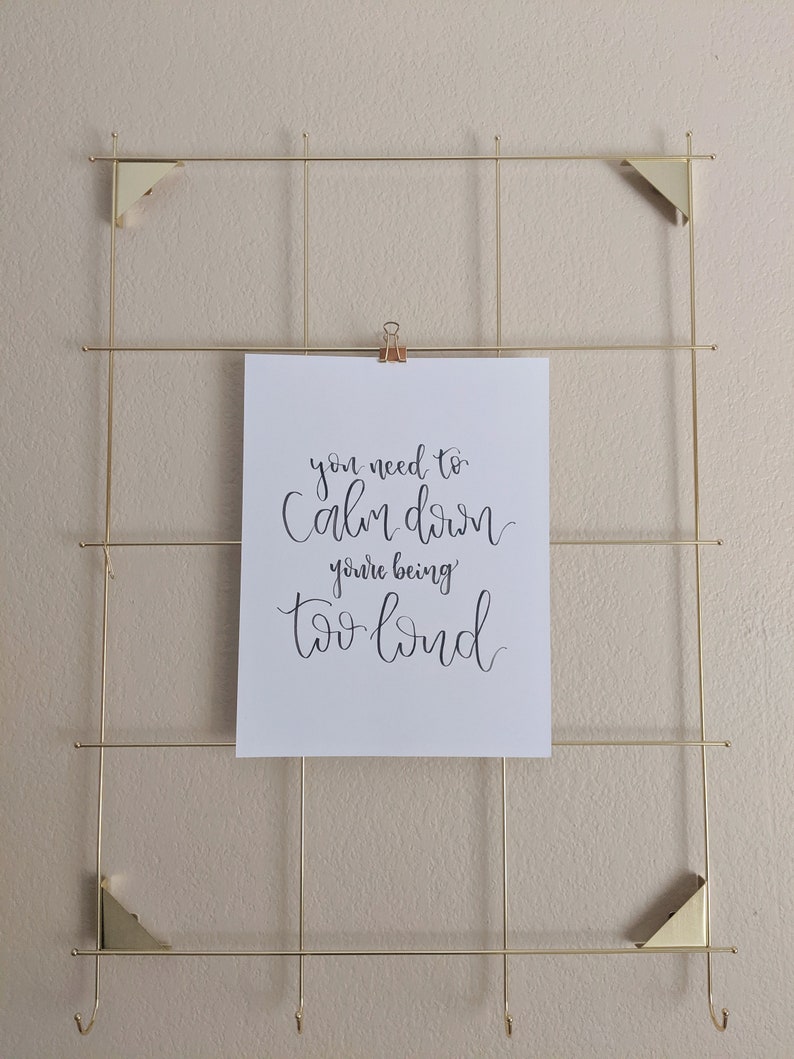 you need to
Calm down
you're being
too loud